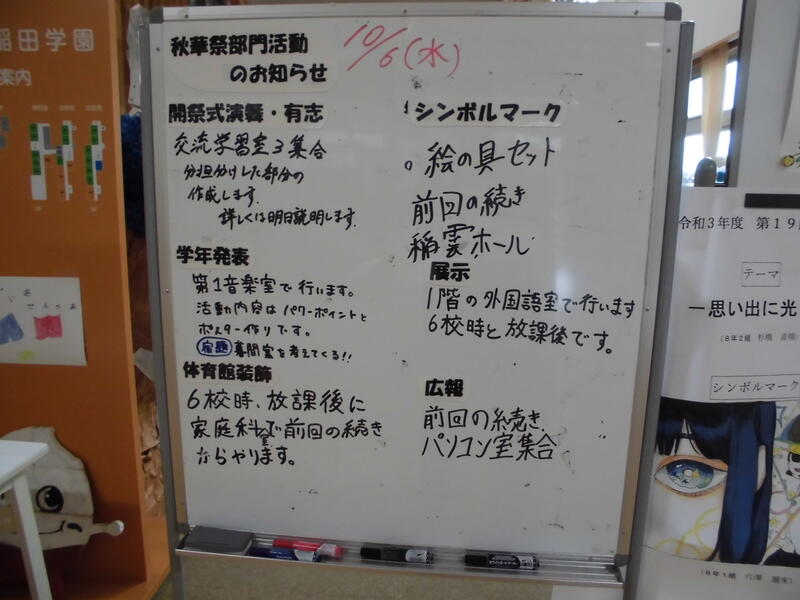 稲田学園
案内
秋華祭部門活動
のお知らせ
10/6(水)
開祭式演舞・有志
交流学習室3集合
分担分けした部分の
作成します.
詳しくは明日説明します.
学年発表
第1音楽室で行います。
活動内容はパワーポイントと
ポスター作りです。
宿題 幕間案を考えてくる!!
体育館装飾
6校時、放課後に
家庭科室で前回の続き
からやります。
シンボルマーク
。絵の具セット
前回の続き
稲雲ホール
展示
1階の外国語室で行います
6校時と放課後です。
広報
前回の続き.
パソコン室集合
令和3年度 第19
テーマ
―思い出に光
(8年2組 杉橋
シンボルマーク
(8年1組 穴澤